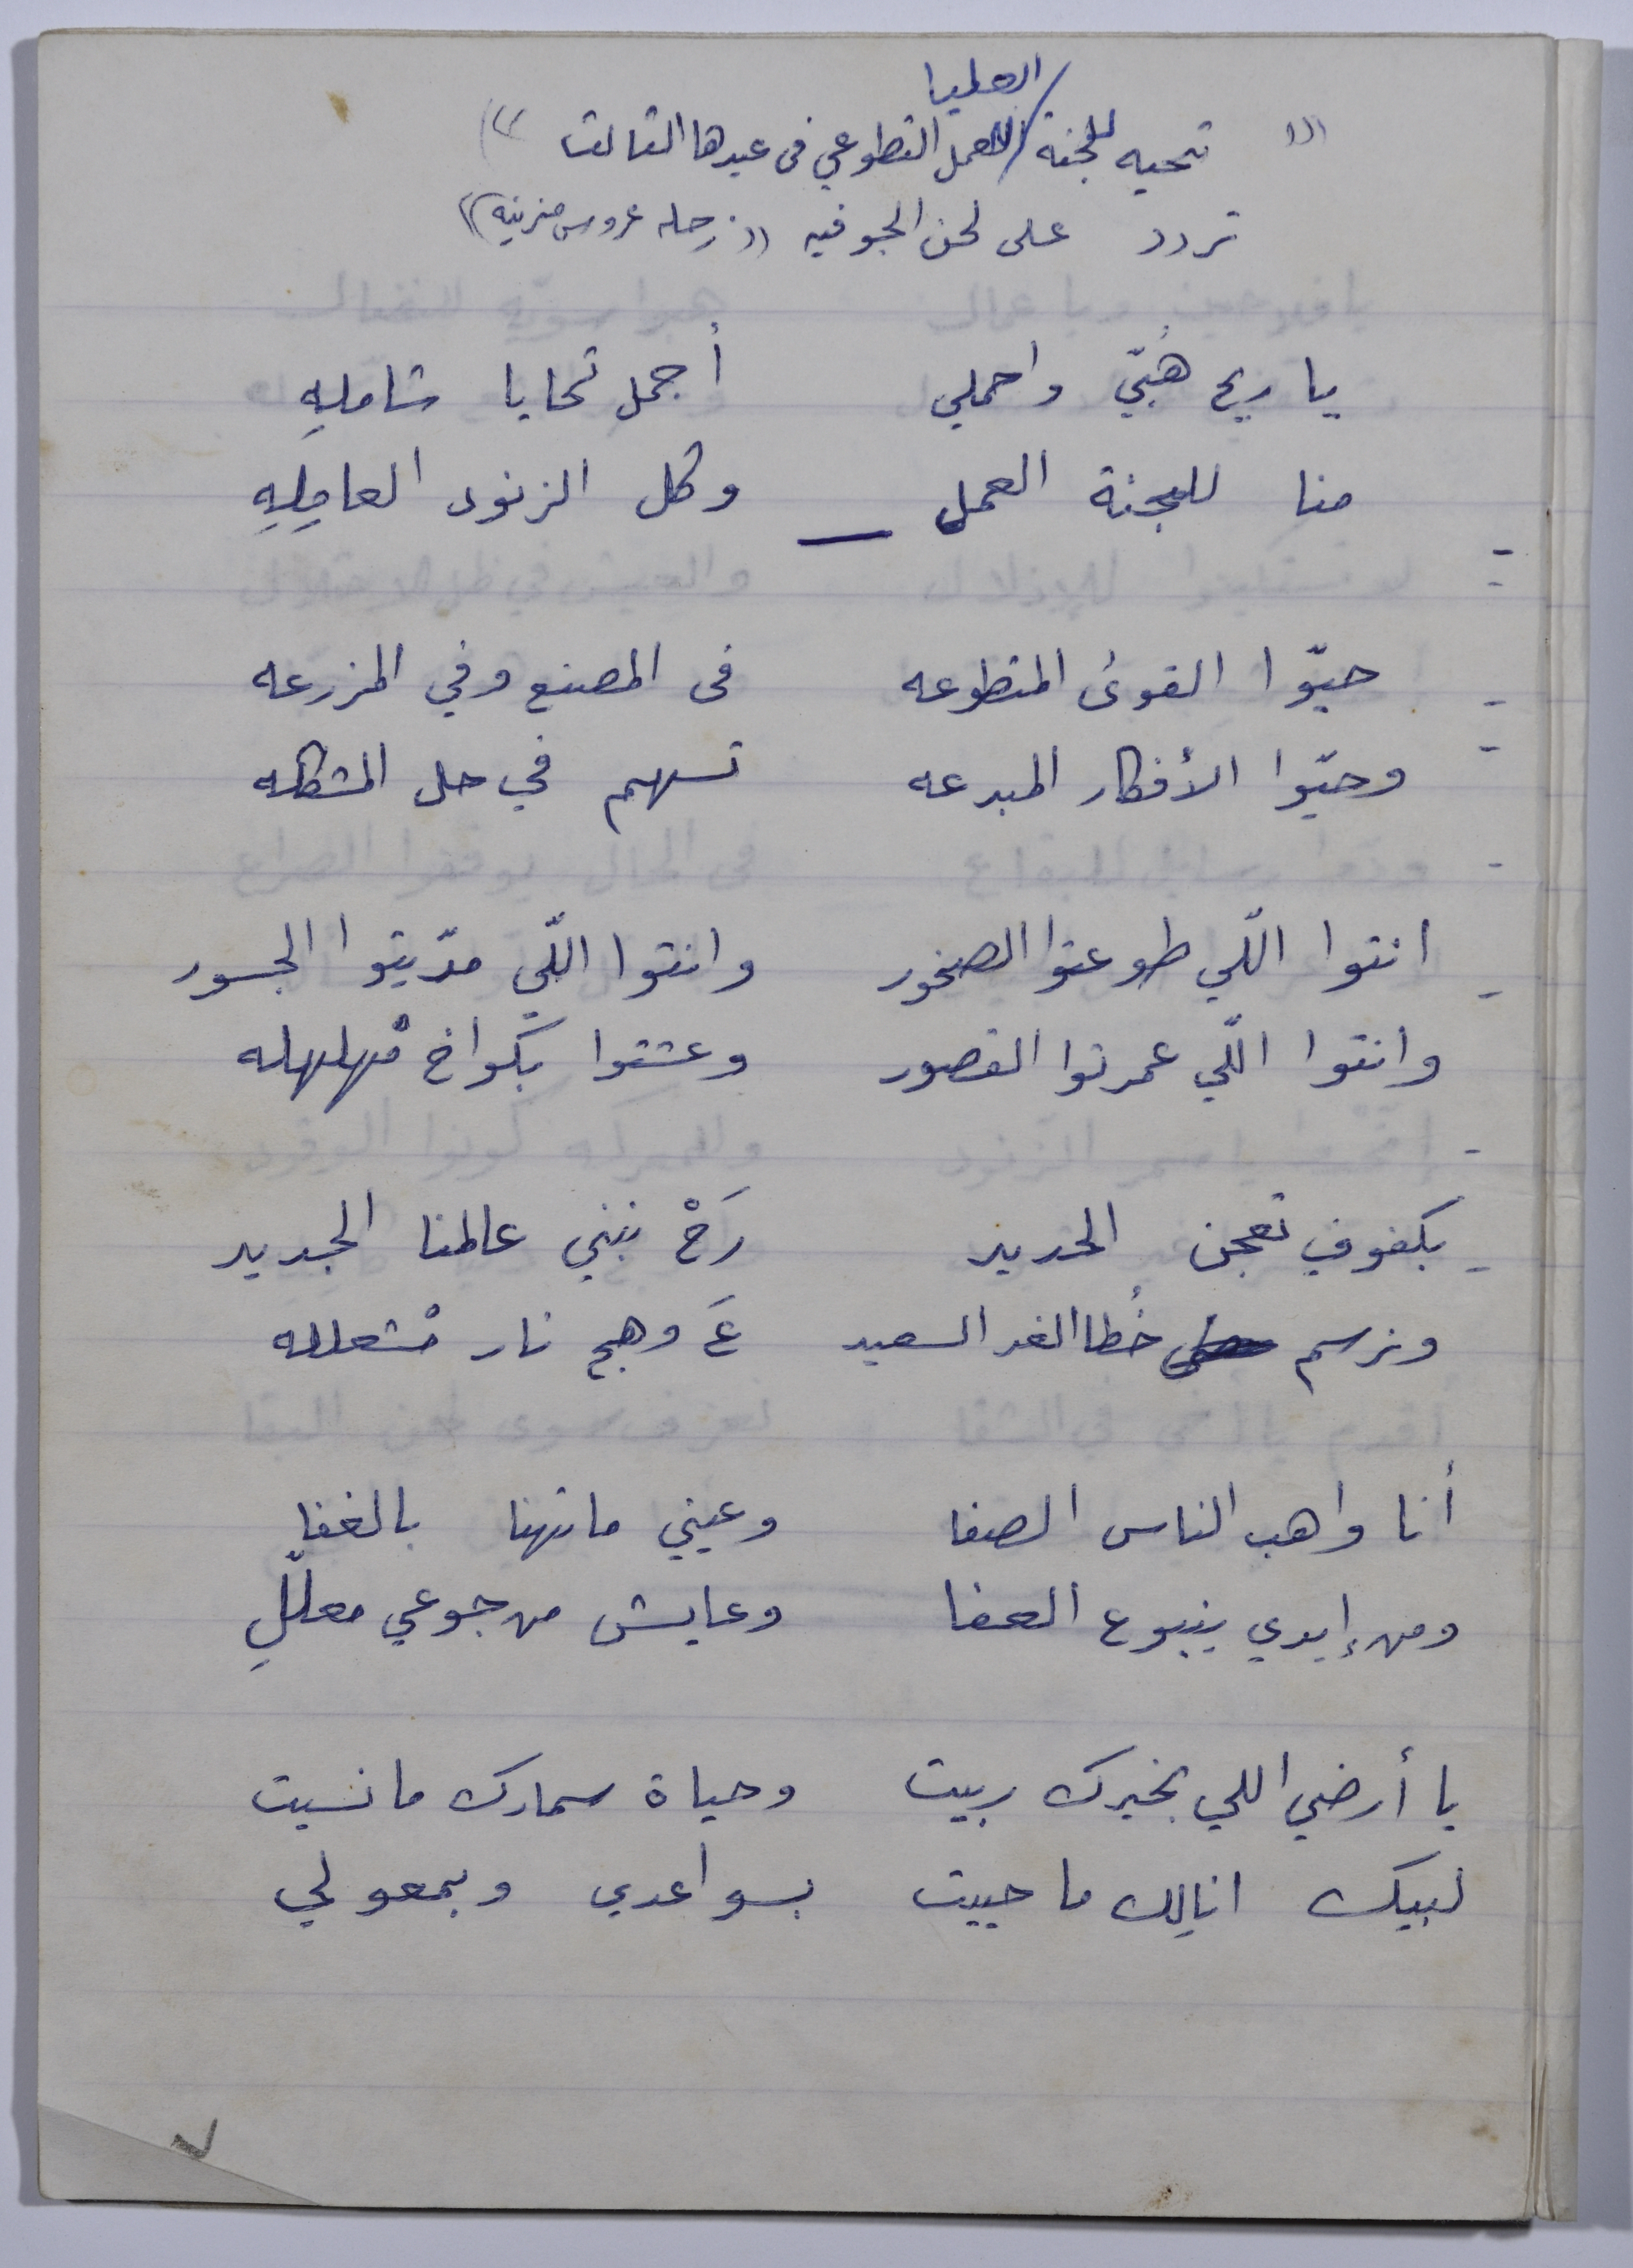 (( تحيه للجنة العليا للعمل التطوعي في عيدها الثالث ))
تردد على لحن الجوفيه ((زحله عروس مزينه))
يا ريح هُبّي واحملي أجمل تحايا شاملهِ
منا للجنة العمل – وكل الزنود العامِلِهِ
- حيّوا القوىٰ المتطوعه في المصنع وفي المزرعه
- وحيّوا الأفكار المبدعه تسهم في حل المشكله
- انتوا اللّي طوعتوا الصخور وانتوا اللّي مدّيتوا الجسور
وانتوا اللّي عمرتوا القصور وعشتوا بكواخ مْهلهله
- بكفوف تعجن الحديد رَحْ نبني عالمنا الجديد
ونرسم خُطا الغد السعيد عَ وهج نار مْشعلله
أنا واهب الناس الصفا وعيني ماتهنا بالغفا
ومن إيدي ينبوع العفا وعايش من جوعي معلّلِ
يا أرضي اللي بخيرك ربيت وحياة سمارك ما نسيت
لبيك انالِك ما حييت بسواعدي وبمعولي
٧